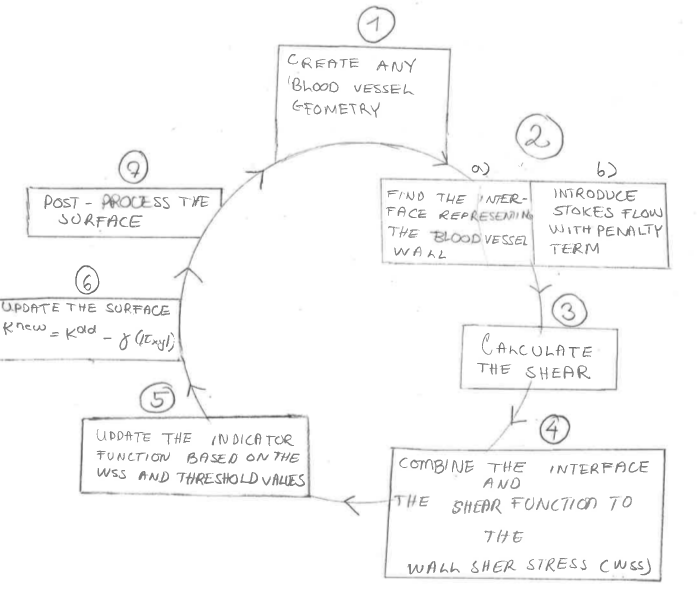 1
CREATE ANY
BLOOD VESSEL
GEOMETRY
2
a)
FIND THE INTER-
FACE REPRESENTING
THE BLOOD VESSEL
WALL
b)
INTRODUCE
STOKES FLOW
WITH PENALTY
TERM
3
CALCULATE
THE SHEAR
4
COMBINE THE INTERFACE
AND
THE SHEAR FUNCTION TO
THE
WALL SHER STRESS (WSS)
5
UPDATE THE INDICATOR
FUNCTION BASED ON THE
WSS AND THRESHOLD VALUES
6
UPDATE THE SURFACE
K^new = K^old - γ(|τxy|)
7
POST-PROCESS THE
SURFACE